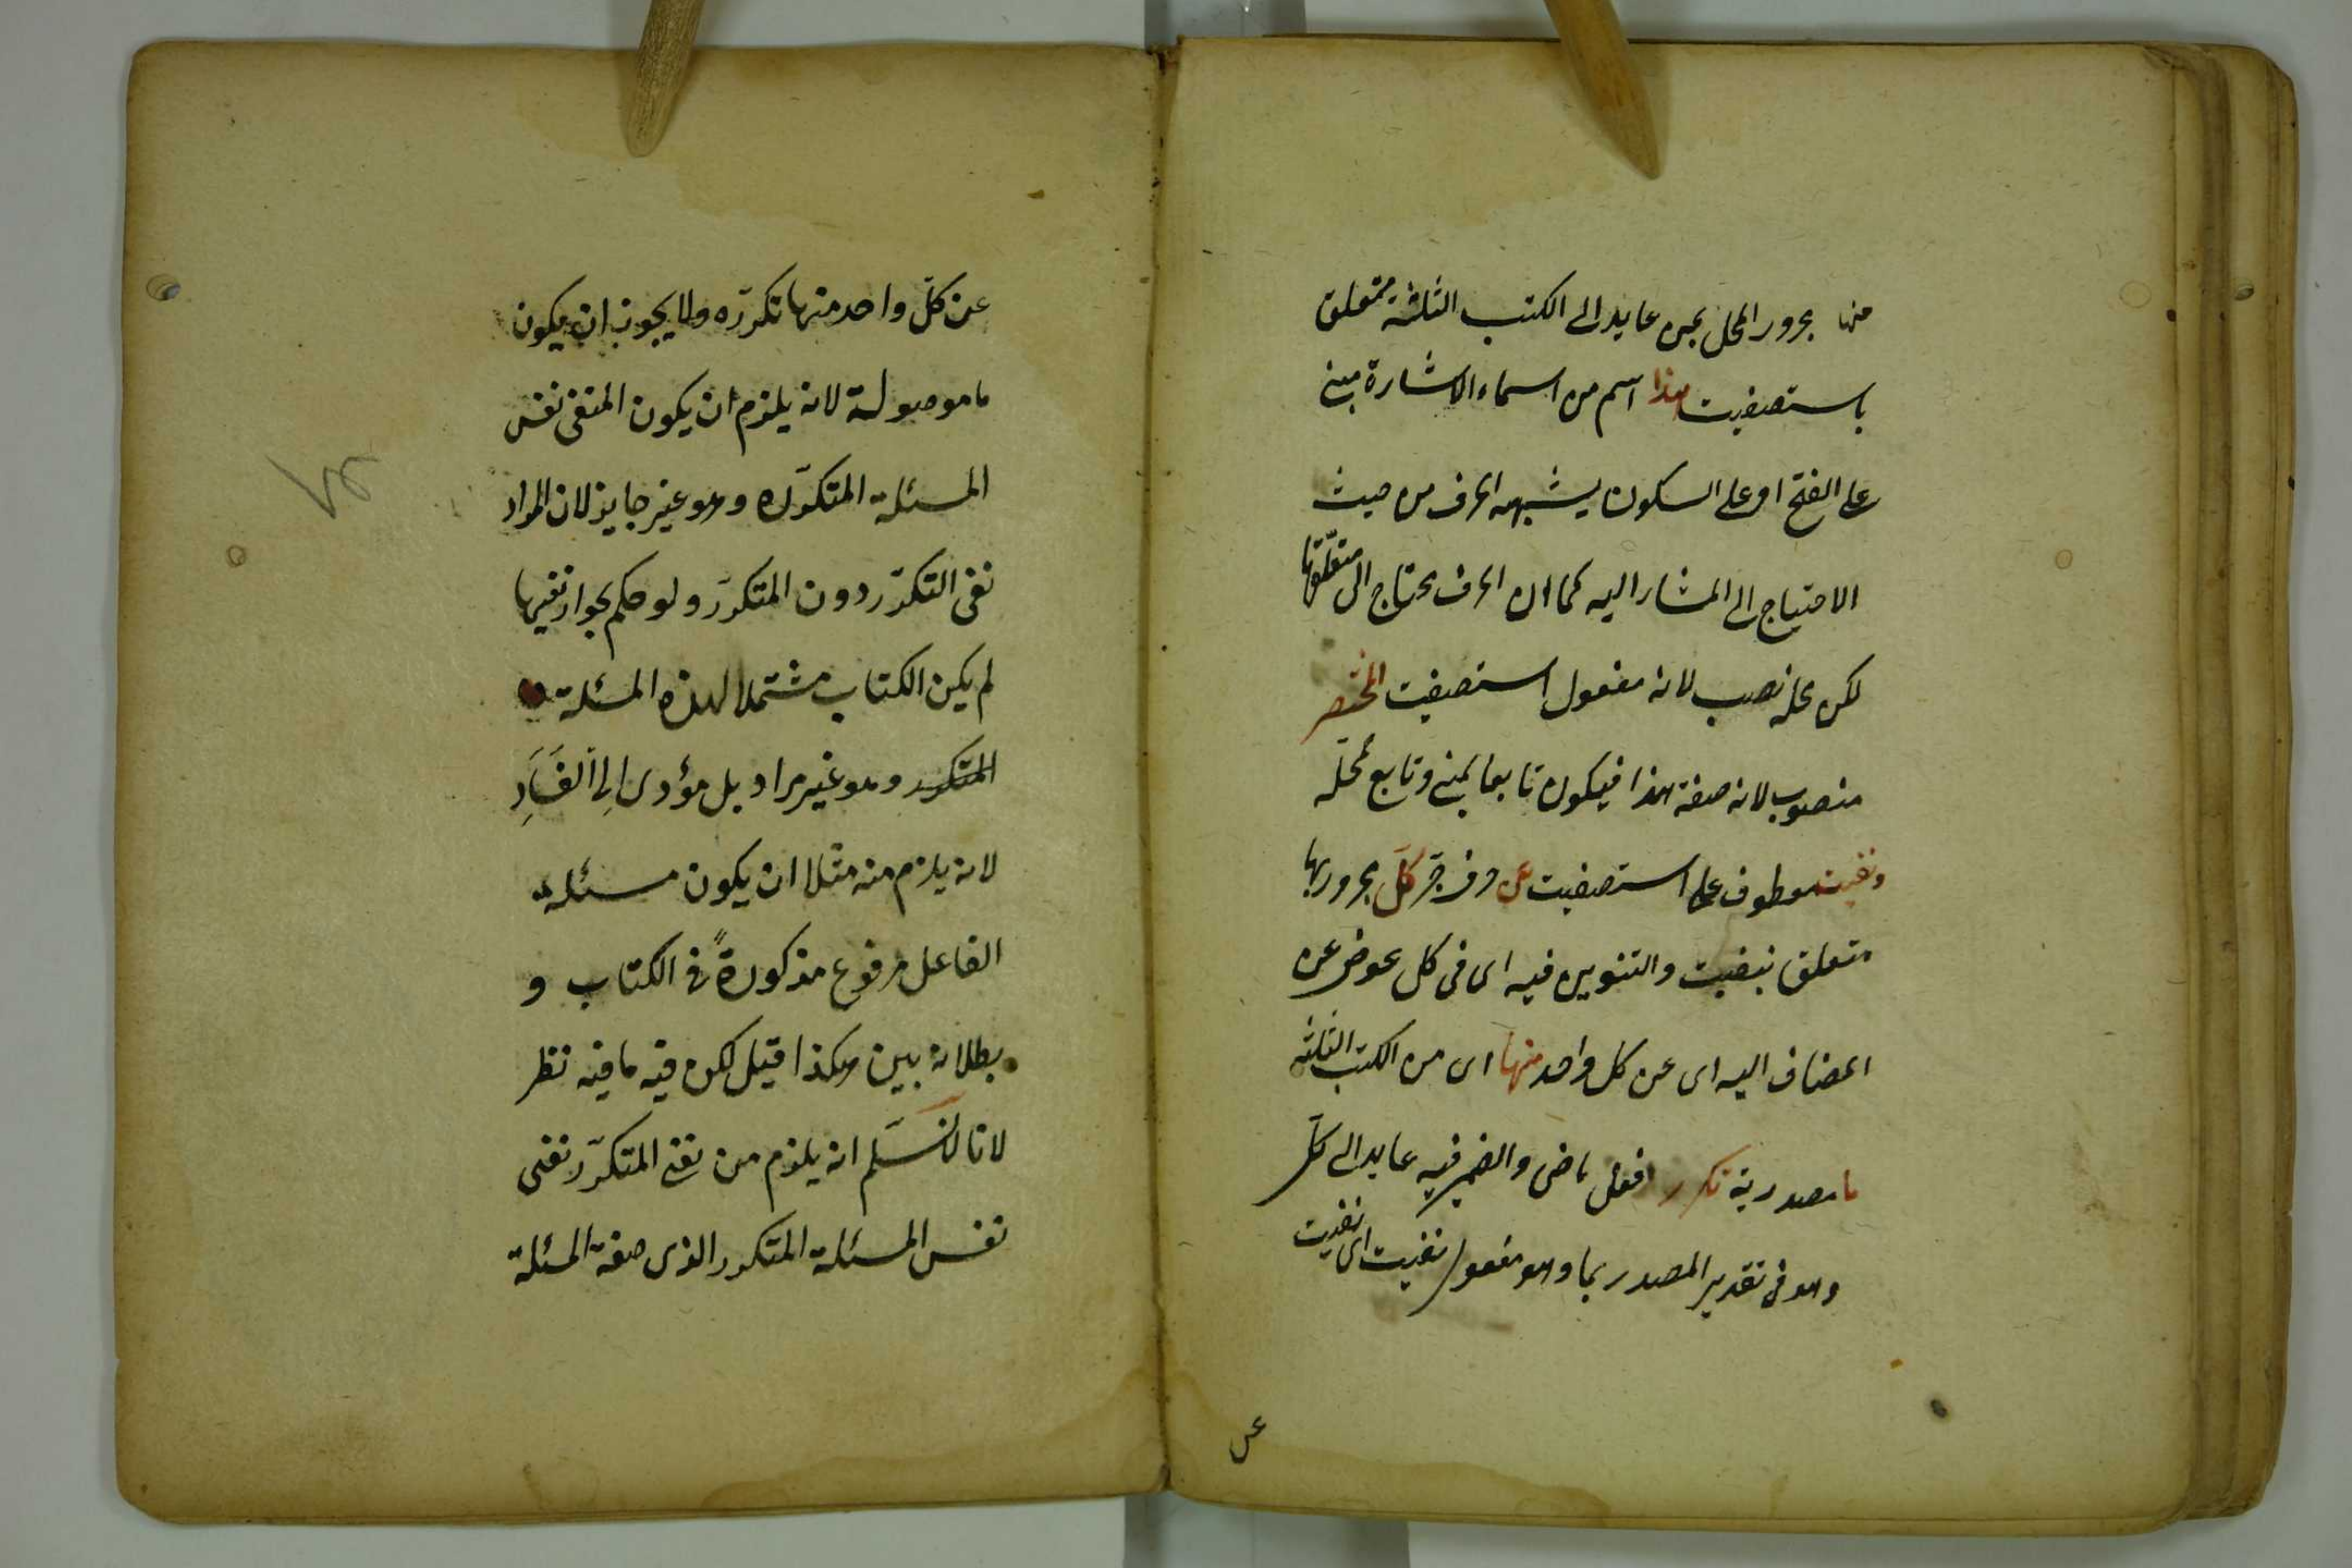 منها مجرور المحل بمن عايد الى الكتب الثلثة متعلق
باستصفيت هذا اسم من اسماء الاشارة مبنى
على الفتح او على السكون يشبهه الحرف من حيث
الاحتياج الى المشار اليه كما ان الحرف يحتاج الى متعلقها
لكن محله نصب لانه مفعول استصفيت المختصر
منصوب لانه صفة هذا فيكون تابعا لمبنى وتابع محله
ونفيت معطوف على استصفيت عن حرف جر كل مجرور بها
متعلق بنفيت والتنوين فيه اى فى كل عوض عن
المضاف اليه اى عن كل واحد منها اى من الكتب الثلثة
ما مصدرية تكرر فعل ماضى والضمير فيه عايد الى كل
وهو فى تقدير المصدر بما وهو مفعول نفيت اى نفيت
عن
عن كلّ واحد منها تكرّره ولا يجوز ان يكون
ما موصولة لانه يلزم ان يكون المنفى نفس
المسئلة المتكرّره وهو غير جايز لان المراد
نفى التكرّر دون المتكرّر ولو حكم بجواز نفيها
لم يكن الكتاب مشتملا لهذه المسئلة
المتكرر وهو غير مراد بل مؤدى اِلى الفَسَادِ
لانه يلزم منه مثلا ان يكون مسئلة
الفاعل مرفوع مذكورةً فى الكتاب و
بطلانه بين هكذا قيل لكن فيه ما فيه نظر
لانا لا نسَلم انه يلزم من نفى المتكرّر نفى
نفس المسئلة المتكرر الذى صفة المسئلة